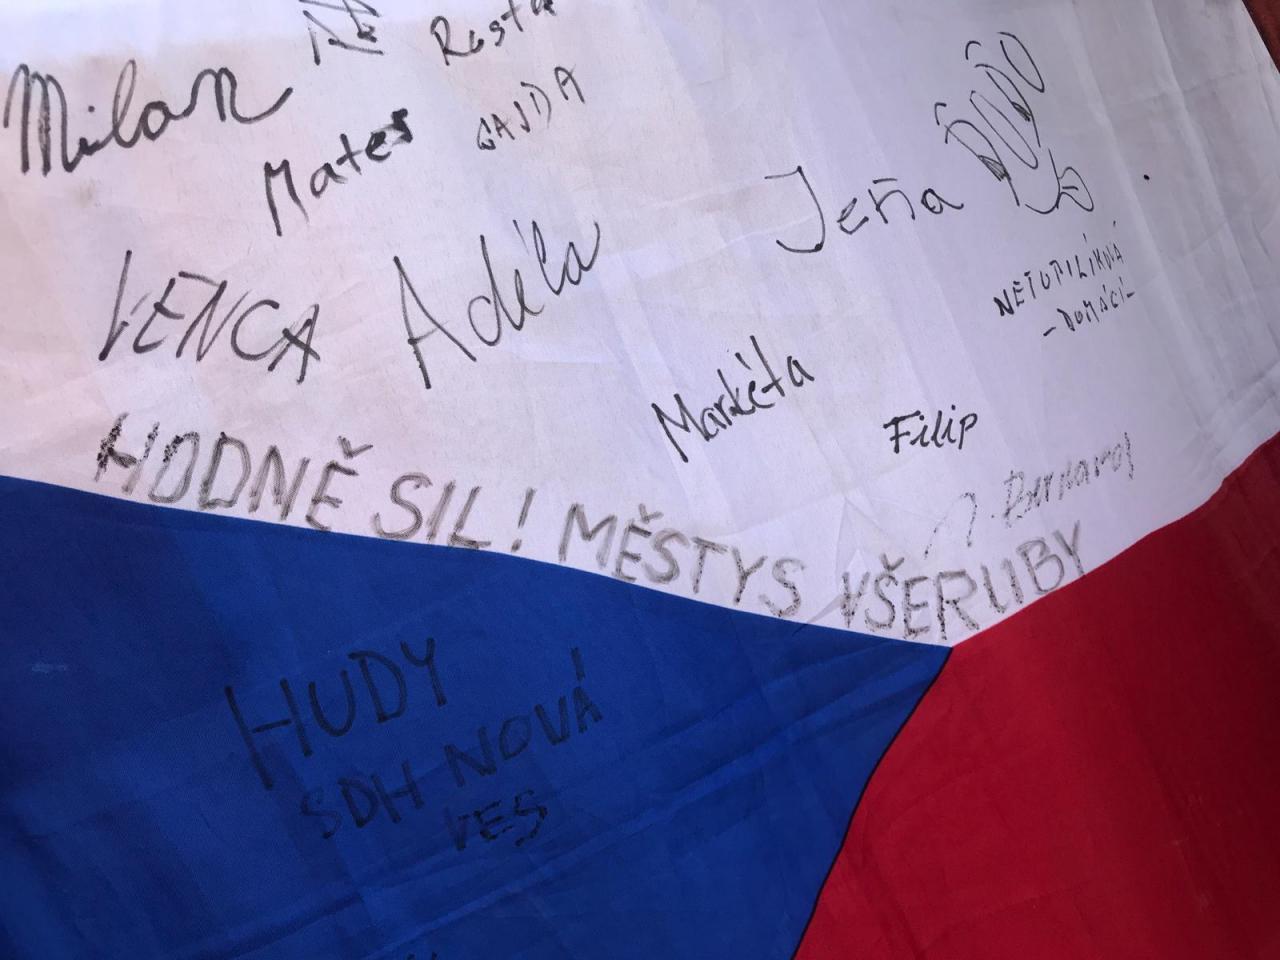 Rosťa
Milan
Mates
GAJDA
Jeňa
VENCA
Adéla
NETOPILÍKOVÁ
- DOMÁCÍ -
Markéta
Filip
HODNĚ SIL! MĚSTYS VŠERUBY
HUDY
SDH NOVÁ
VES